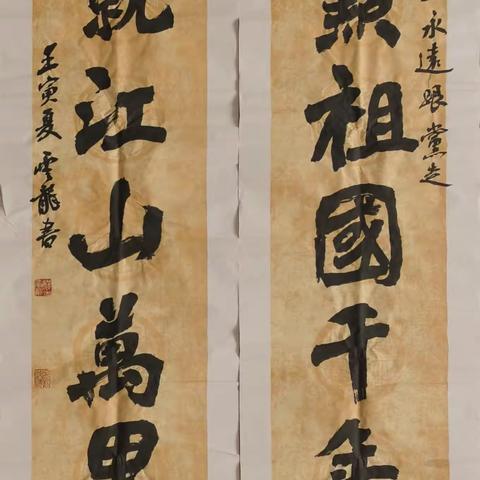 永遠跟黨走
祖國千年
就江山萬里
壬寅夏雲龍書